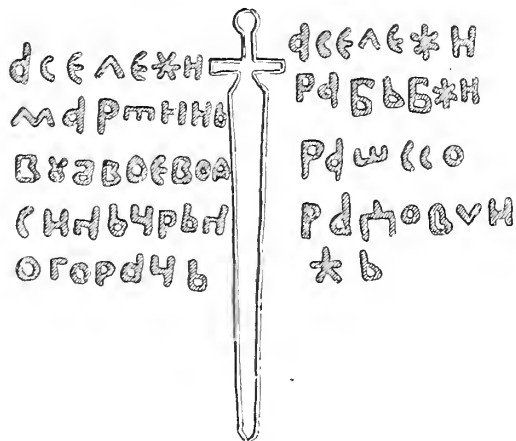 АСЕЛЕЖИ
МАРТИНЬ
ВꙊАВОЕВОД
СИНЬЧРЬН
ОГОРАЧЬ
АСЕЛЕЖИ
РАБЬБЖИ
РАШССО
РАДОВѴИ
ЖЬ